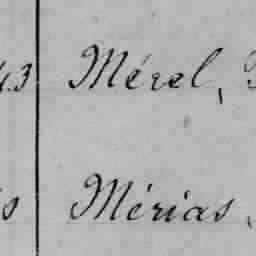 43 Mérel,
Mérias,